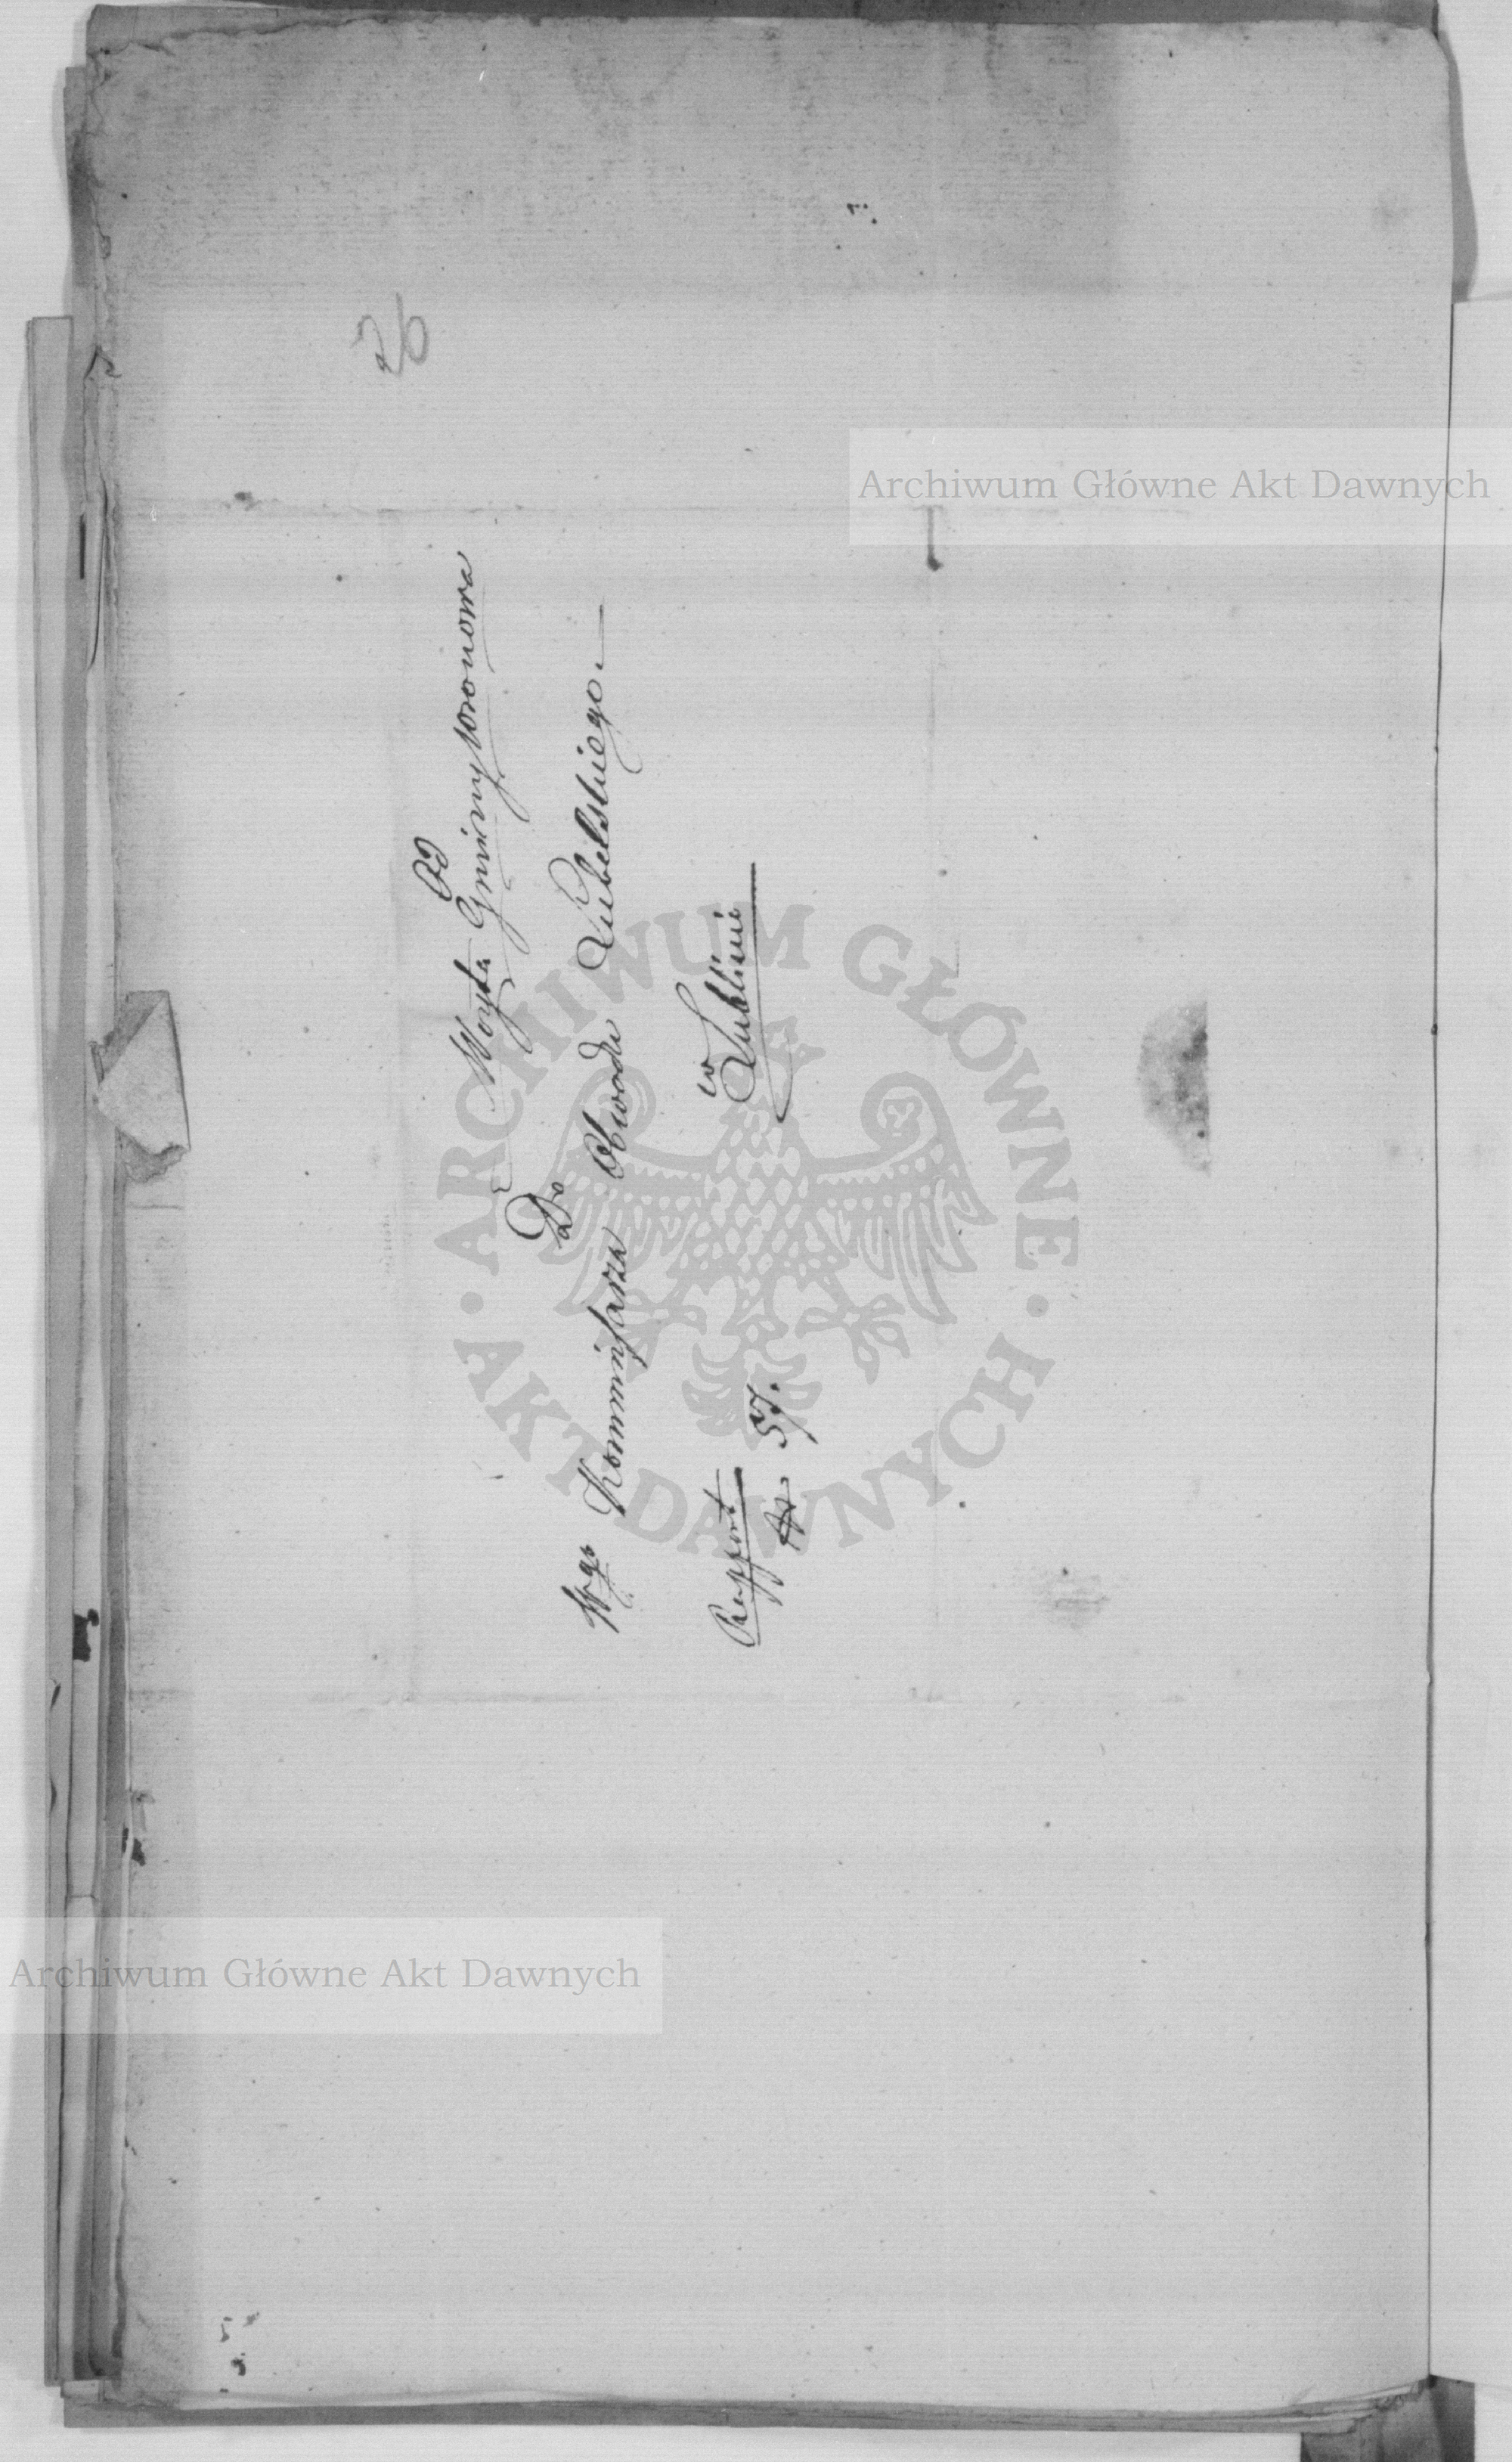 26
Od
Woyta Gminy Wronowa
Do
Wgo Kommissarza Obwodu Lubelskiego.
w
Lublinie
Rapport
Nr 57.
Archiwum Główne Akt Dawnych
ARCHIWUM GŁÓWNE AKT DAWNYCH
Archiwum Główne Akt Dawnych